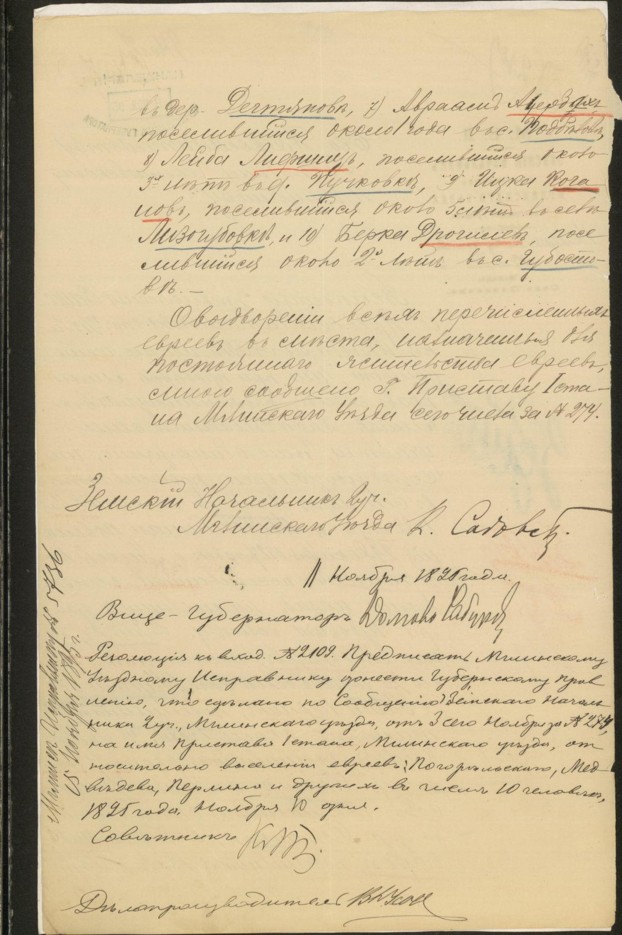 въ дер. Дегтяповк, 7) Авраамъ
поселившійся около 1 года въ с.
8) Лейба Лифшицъ, поселившійся около
3хъ лѣтъ въ д. Пучковкѣ, 9) Ицка Кога
новъ, поселившійся около 5 лѣтъ въ сель
Лизогубовкѣ, и 10) Берка Дрогичевъ, посе
лившійся около 2хъ лѣтъ въ с. Губости
вкѣ. —
О выдвореніи всѣхъ перечисленныхъ
евреевъ въ мѣста, назначенныя для
постояннаго жительства евреевъ,
мною сообщено Г. Приставу 1 ста-
на Мглинскаго Уѣзда сего числа за № 274.
Земскій Начальникъ 1 уч.
Мглинскаго Уѣзда К. Садовск
11 Ноября 1895 года.
Вице-Губернаторъ
Резолюція на вход. № 2109. Предписать Мглинскому
Уѣздному Исправнику донести Губернскому прав
ленію, что сдѣлано по сообщенію Земскаго Началь
ника 1 уч., Мглинскаго уѣзда, отъ 3 сего Ноября за № 274,
на имя Пристава 1 стана, Мглинскаго уѣзда, от
носительно выселенія евреевъ: Погорѣльскаго, Мед
вѣдева, Перлина и другихъ въ числѣ 10 человѣкъ,
1895 года Ноября 10 дня.
Совѣтникъ
Дѣлопроизводитель
Мглинск. Исправнику № 5736
15 Ноября 1895 г.